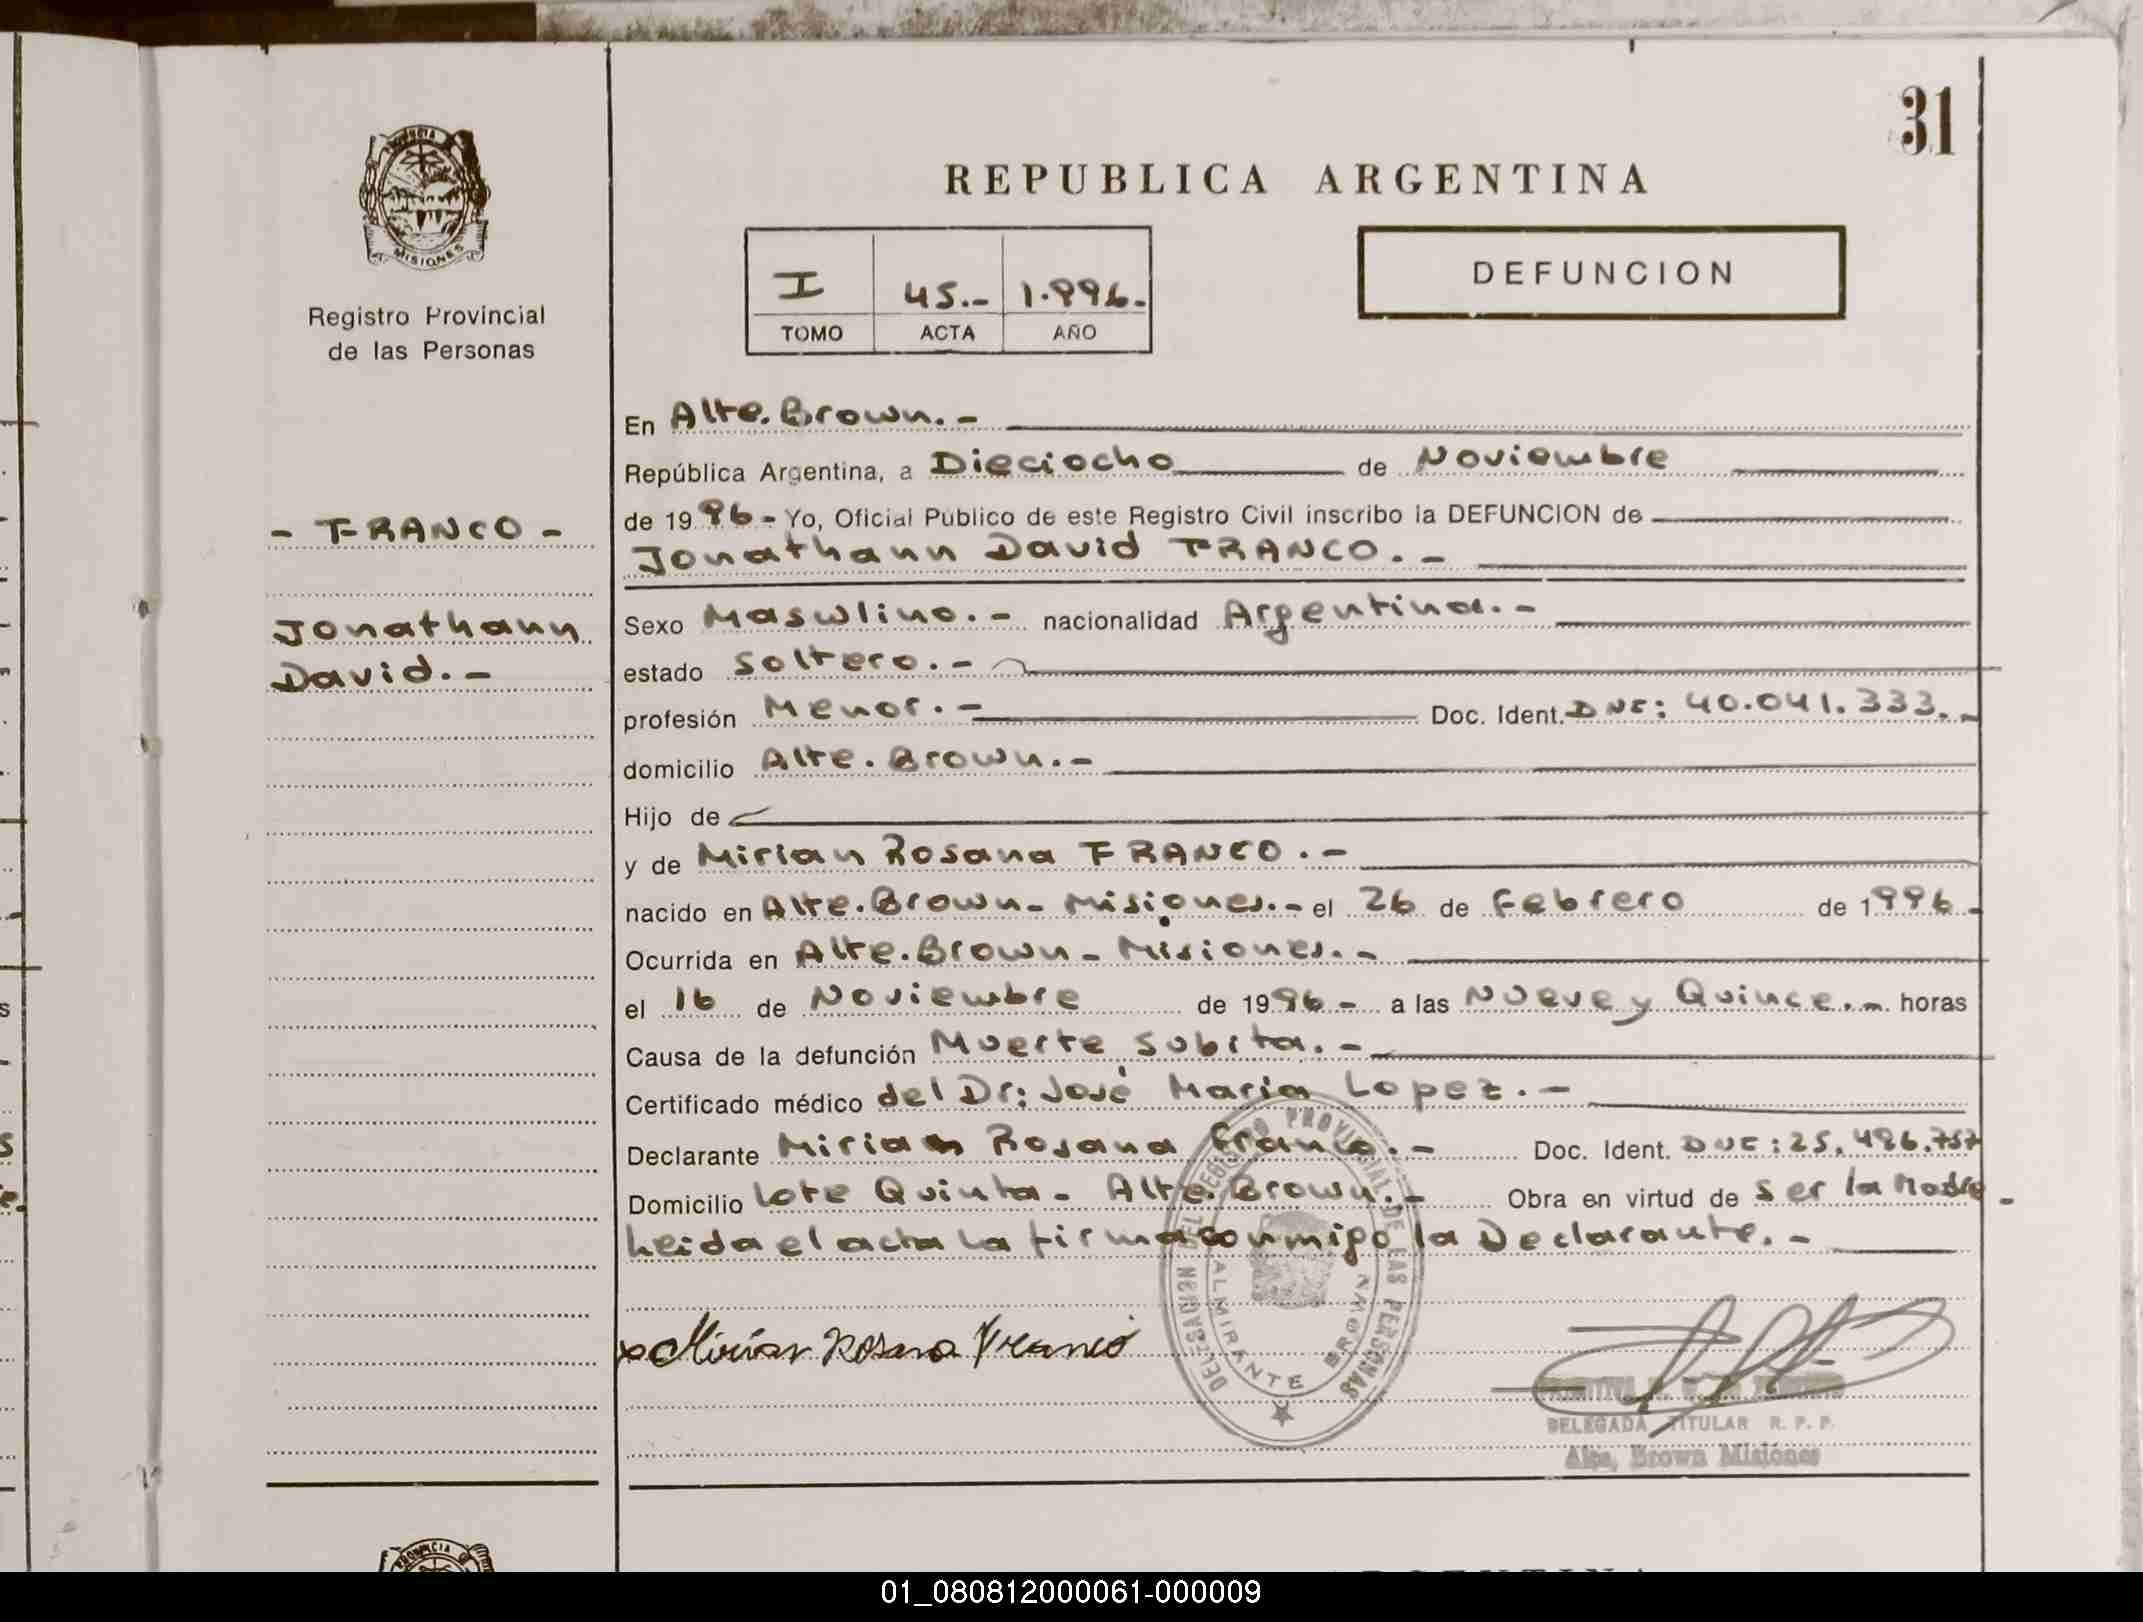 31
PROVINCIA
MISIONES
Registro Provincial
de las Personas
REPUBLICA ARGENTINA
I 45.- 1.996.-
TOMO ACTA AÑO
DEFUNCION
- FRANCO -
Jonathann
David.-
En Alte. Brown.-
República Argentina, a Dieciocho de Noviembre
de 1996- Yo, Oficial Público de este Registro Civil inscribo la DEFUNCION de
Jonathann David FRANCO.-
Sexo Masculino.- nacionalidad Argentina.-
estado Soltero.-
profesión Menor.- Doc. Ident. DNI: 40.041.333.-
domicilio Alte. Brown.-
Hijo de
y de Mirian Rosana FRANCO.-
nacido en Alte. Brown- Misiones.- el 26 de Febrero de 1996.-
Ocurrida en Alte. Brown- Misiones.-
el 16 de Noviembre de 1996- a las Nueve y Quince.- horas
Causa de la defunción Muerte Subita.-
Certificado médico del Dr: José Maria Lopez.-
Declarante Mirian Rosana Franco.- Doc. Ident. DNI: 25.486.757
Domicilio Lote Quinta- Alte. Brown.- Obra en virtud de Ser la Madre-
Leida el acta La firma conmigo la Declarante.-
DELEGACION DEL REGISTRO PROVINCIAL DE LAS PERSONAS
ALMIRANTE BROWN
x Mirian Rosana Franco
DELEGADA TITULAR R. P. P.
Alte. Brown Misiones
PROVINCIA
01_080812000061-000009